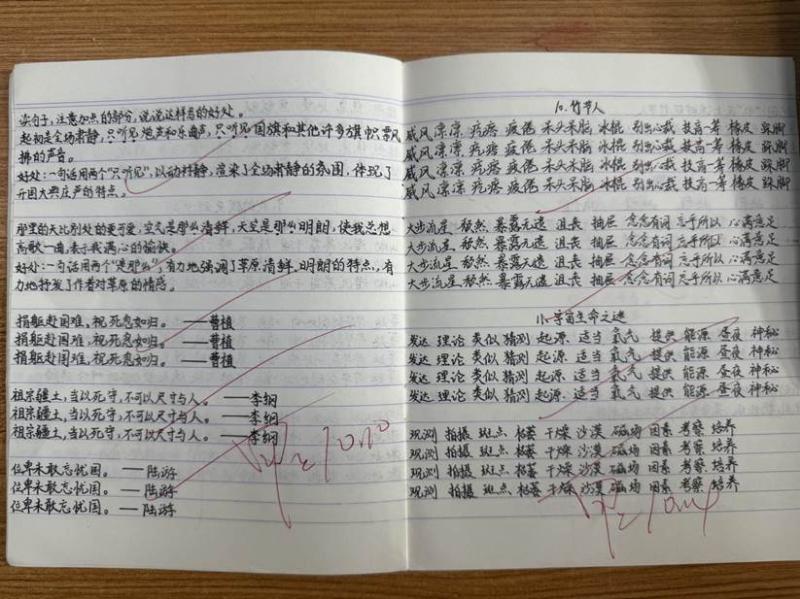 读句子，注意加点的部分，说说这样写的好处。
起初是全场肃静，只听见炮声和乐曲声，只听见国旗和其他许多旗帜飘拂的声音。
好处：一句话用两个“只听见”，以动衬静，渲染了全场肃静的氛围，体现了
开国大典庄严的特点。
那里的天比别处的更可爱，空气是那么清鲜，天空是那么明朗，使我总想
高歌一曲，表示我满心的愉快。
好处：一句话用两个“是那么”，有力地强调了草原清鲜、明朗的特点，有
力地抒发了作者对草原的情感。
捐躯赴国难，视死忽如归。——曹植
捐躯赴国难，视死忽如归。——曹植
捐躯赴国难，视死忽如归。——曹植
祖宗疆土，当以死守，不可以尺寸与人。——李纲
祖宗疆土，当以死守，不可以尺寸与人。——李纲
祖宗疆土，当以死守，不可以尺寸与人。——李纲
位卑未敢忘忧国。——陆游
位卑未敢忘忧国。——陆游
位卑未敢忘忧国。——陆游
10.竹节人
威风凛凛 疙瘩 疲倦 呆头呆脑 冰棍 别出心裁 技高一筹 橡皮 跺脚
威风凛凛 疙瘩 疲倦 呆头呆脑 冰棍 别出心裁 技高一筹 橡皮 跺脚
威风凛凛 疙瘩 疲倦 呆头呆脑 冰棍 别出心裁 技高一筹 橡皮 跺脚
威风凛凛 疙瘩 疲倦 呆头呆脑 冰棍 别出心裁 技高一筹 橡皮 跺脚
大步流星 颓然 暴露无遗 沮丧 抽屉 念念有词 忘乎所以 心满意足
大步流星 颓然 暴露无遗 沮丧 抽屉 念念有词 忘乎所以 心满意足
大步流星 颓然 暴露无遗 沮丧 抽屉 念念有词 忘乎所以 心满意足
大步流星 颓然 暴露无遗 沮丧 抽屉 念念有词 忘乎所以 心满意足
11.宇宙生命之谜
发达 理论 类似 猜测 起源 适当 氧气 提供 能源 昼夜 神秘
发达 理论 类似 猜测 起源 适当 氧气 提供 能源 昼夜 神秘
发达 理论 类似 猜测 起源 适当 氧气 提供 能源 昼夜 神秘
发达 理论 类似 猜测 起源 适当 氧气 提供 能源 昼夜 神秘
观测 拍摄 斑点 枯萎 干燥 沙漠 磁场 因素 考察 培养
观测 拍摄 斑点 枯萎 干燥 沙漠 磁场 因素 考察 培养
观测 拍摄 斑点 枯萎 干燥 沙漠 磁场 因素 考察 培养
观测 拍摄 斑点 枯萎 干燥 沙漠 磁场 因素 考察 培养